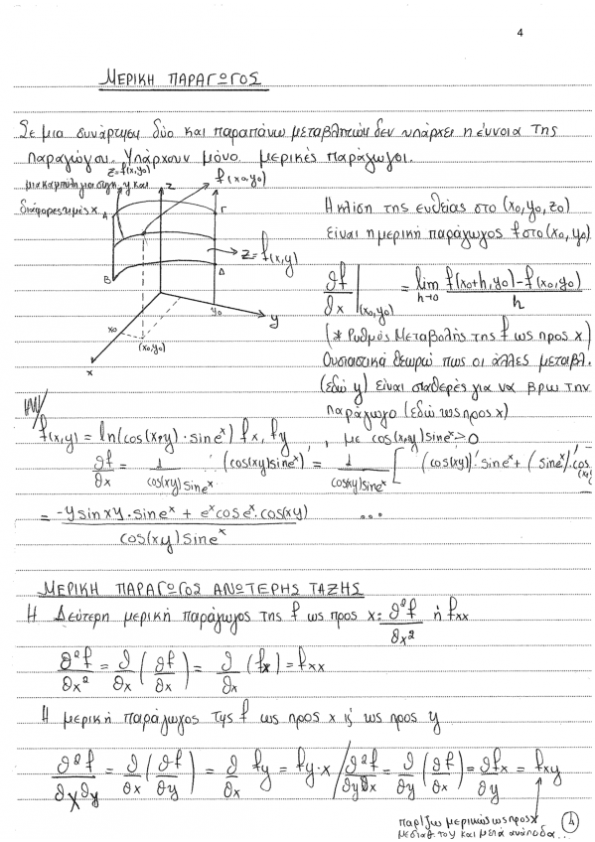 4
ΜΕΡΙΚΗ ΠΑΡΑΓΩΓΟΣ
Σε μια συνάρτηση δύο και παραπάνω μεταβλητών δεν υπάρχει η έννοια της
παραγώγου. Υπάρχουν μόνο μερικές παράγωγοι.
z=f(x,y₀)
μια καμπύλη για συγκ. y και
διάφορες τιμές x
z
f(x₀,y₀)
A
Γ
B
Δ
z=f(x,y)
x₀
y₀
(x₀,y₀)
y
x
Η κλίση της ευθείας στο (x₀,y₀,z₀)
είναι η μερική παράγωγος f στο (x₀,y₀)
∂f/∂x |(x₀,y₀) = lim h→0 f(x₀+h,y₀)-f(x₀,y₀)/h
(* Ρυθμός Μεταβολής της f ως προς x)
Ουσιαστικά θεωρώ πως οι άλλες μεταβλ.
(εδώ y) είναι σταθερές για να βρω την
παράγωγο (εδώ ως προς x)
f(x,y) = ln(cos(xy)·sine^x) fx, fy , με cos(xy)sine^x>0
∂f/∂x = 1/cos(xy)sine^x ·(cos(xy)sine^x)' = 1/cos(xy)sine^x [ (cos(xy))'·sine^x + (sine^x)'·cos(xy)
= -ysinxy·sine^x + e^x cose^x·cos(xy)/cos(xy)sine^x ...
ΜΕΡΙΚΗ ΠΑΡΑΓΩΓΟΣ ΑΝΩΤΕΡΗΣ ΤΑΞΗΣ
Η Δεύτερη μερική παράγωγος της f ως προς x: ∂²f/∂x² ή fxx
∂²f/∂x² = ∂/∂x (∂f/∂x) = ∂/∂x (fx) = fxx
Η μερική παράγωγος της f ως προς x κ' ως προς y
∂²f/∂x∂y = ∂/∂x (∂f/∂y) = ∂/∂x fy = fy·x / ∂²f/∂y∂x = ∂/∂y (∂f/∂x) = ∂fx/∂y = fxy
παρ/ζω μερικώς ως προς x
και μετά ανάποδα...
4